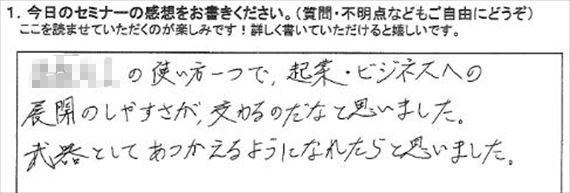 1. 今日のセミナーの感想をお書きください。(質問・不明点などもご自由にどうぞ)
ここを読ませていただくのが楽しみです!詳しく書いていただけると嬉しいです。
の使い方一つで、起業・ビジネスへの
展開のしやすさが、変わるのだなと思いました。
武器としてあつかえるようになれたらと思いました。